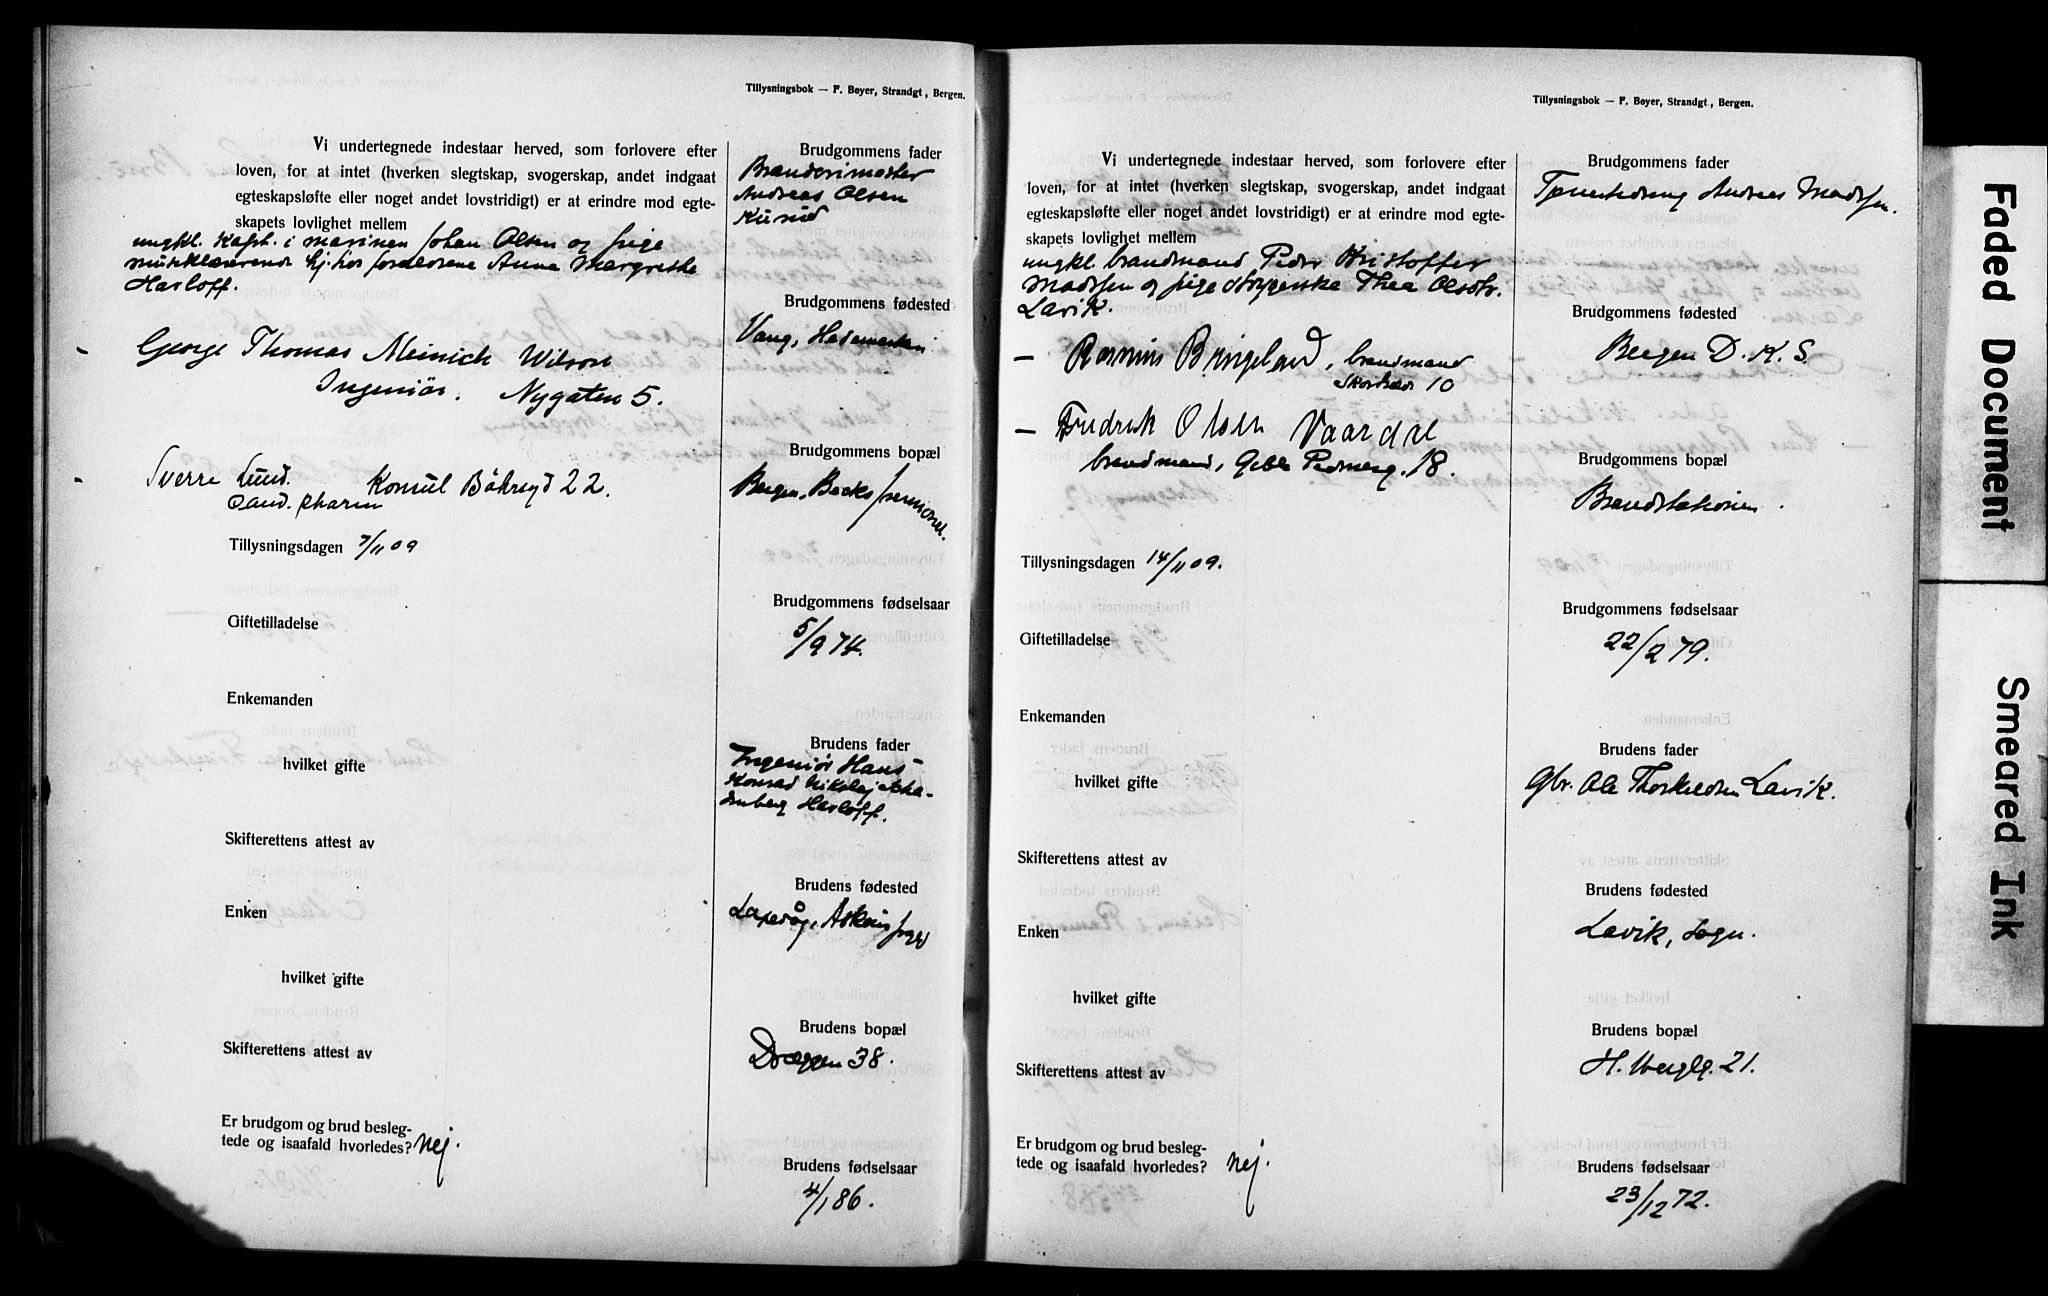 Tillysningsbok — F. Beyer, Strandgt, Bergen.
Vi undertegnede indestaar herved, som forlovere efter
loven, for at intet (hverken slegtskap, svogerskap, andet indgaat
egteskapsløfte eller noget andet lovstridigt) er at erindre mod egte-
skapets lovlighet mellem
ungkl. kapt. i marinen Johan Olsen og pige
musiklærerinde hj. hos forældrene Anna Margrethe
Harloff.
George Thomas Meinich Wilson
Ingeniør. Nygaten 5.
Sverre Lund.
Cand. pharm Konsul Børsgd 22.
Tillysningsdagen 7/11 09
Giftetilladelse
Enkemanden
hvilket gifte
Skifterettens attest av
Enken
hvilket gifte
Skifterettens attest av
Er brudgom og brud besleg-
tede og isaafald hvorledes? Nej.
Brudgommens fader
Brænderimester
Andreas Olsen
Brudgommens fødested
Vang, Hedemarken
Brudgommens bopæl
Bergen,
Brudgommens fødselsaar
5/9 74.
Brudens fader
Ingeniør Hans
Konrad Nikolaj
Harloff.
Brudens fødested
Laxevåg, Askøens
Brudens bopæl
Dræggen 38.
Brudens fødselsaar
4/1 86.
Tillysningsbok — F. Beyer, Strandgt, Bergen.
Vi undertegnede indestaar herved, som forlovere efter
loven, for at intet (hverken slegtskap, svogerskap, andet indgaat
egteskapsløfte eller noget andet lovstridigt) er at erindre mod egte-
skapets lovlighet mellem
ungkl. brandmand Peder Kristoffer
Madsen og pige strygerske Thea Olsdtr.
Lavik.
— Rasmus Bringeland, brandmand
10
— Fredrik Olsen Vaardal
brandmand, Geble Pedersg. 18.
Tillysningsdagen 14/11 09.
Giftetilladelse
Enkemanden
hvilket gifte
Skifterettens attest av
Enken
hvilket gifte
Skifterettens attest av
Er brudgom og brud besleg-
tede og isaafald hvorledes? Nej.
Brudgommens fader
Andreas Madsen.
Brudgommens fødested
Bergen D. K. S.
Brudgommens bopæl
Brandstationen.
Brudgommens fødselsaar
22/2 79.
Brudens fader
Gbr. Ole Thorkildsen Lavik.
Brudens fødested
Lavik, Sogn.
Brudens bopæl
H. Wergelg. 21.
Brudens fødselsaar
23/12 72.
Faded Document
Smeared Ink